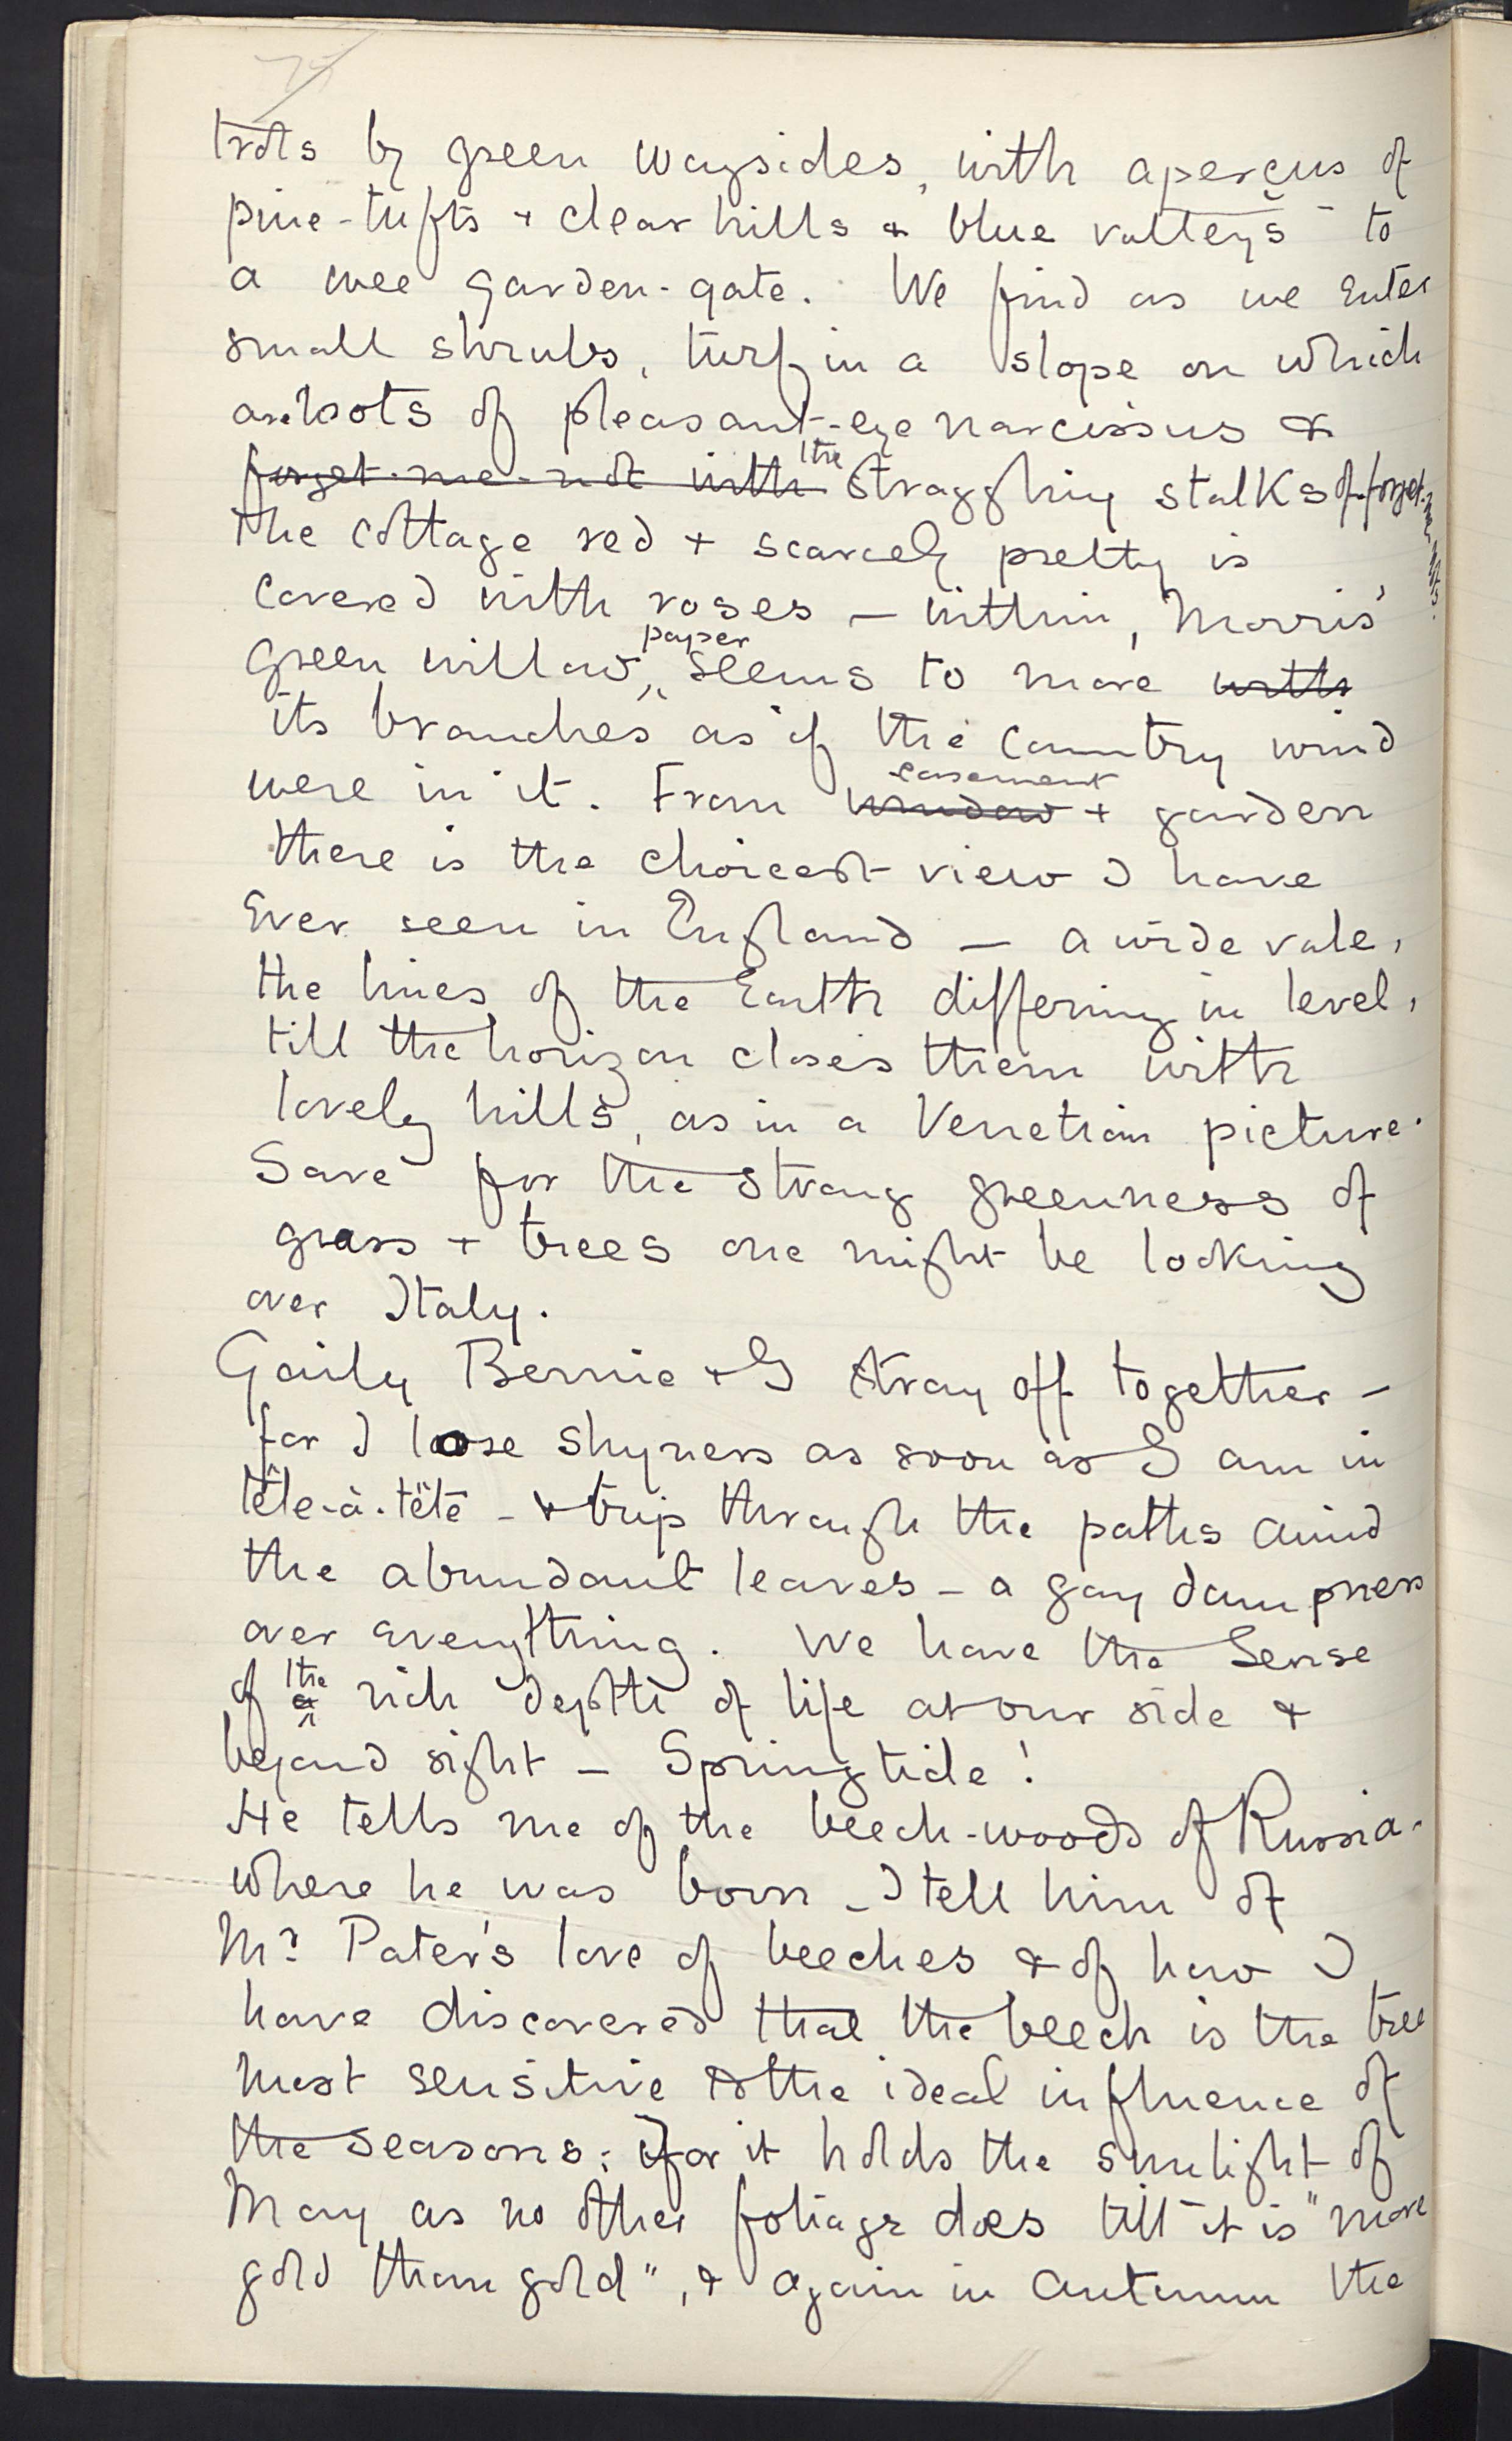 trots by green waysides, with aperçus of
pine-tufts + clear hills & blue valleys to
a wee garden-gate. We find as we enter
small shrubs, turf in a slope on which
are knots of pleasant-eye narcissus &
forget-me-not with the straggling stalks of forget-me-nots.
the cottage red + scarcely pretty is
covered with roses – within, Morris'
green willow paper seems to move with
its branches as if the country wind
were in it. From window casement + garden
there is the choicest view I have
Ever seen in England – a wide vale,
the lines of the Earth differing in level,
till the horizon closes them with
lovely hills, as in a Venetian picture.
Save for the strong greenness of
grass + trees one might be looking
over Italy.
Gaily Bernie + I stray off together –
for I loose shyness as soon as I am in
tête-à-tête – & trip through the paths amid
the abundant leaves – a gay dampness
over everything. We have the Sense
of a the rich depth of life at our side &
beyond sight – Springtide!
He tells me of the beech-woods of Russia.
where he was born – I tell him of
Mr Pater's love of beeches & of how I
have discovered that the beech is the tree
most sensitive to the ideal influence of
the seasons; for it holds the sunlight of
May as no other foliage does till it is "more
gold than gold", & again in Autumn the